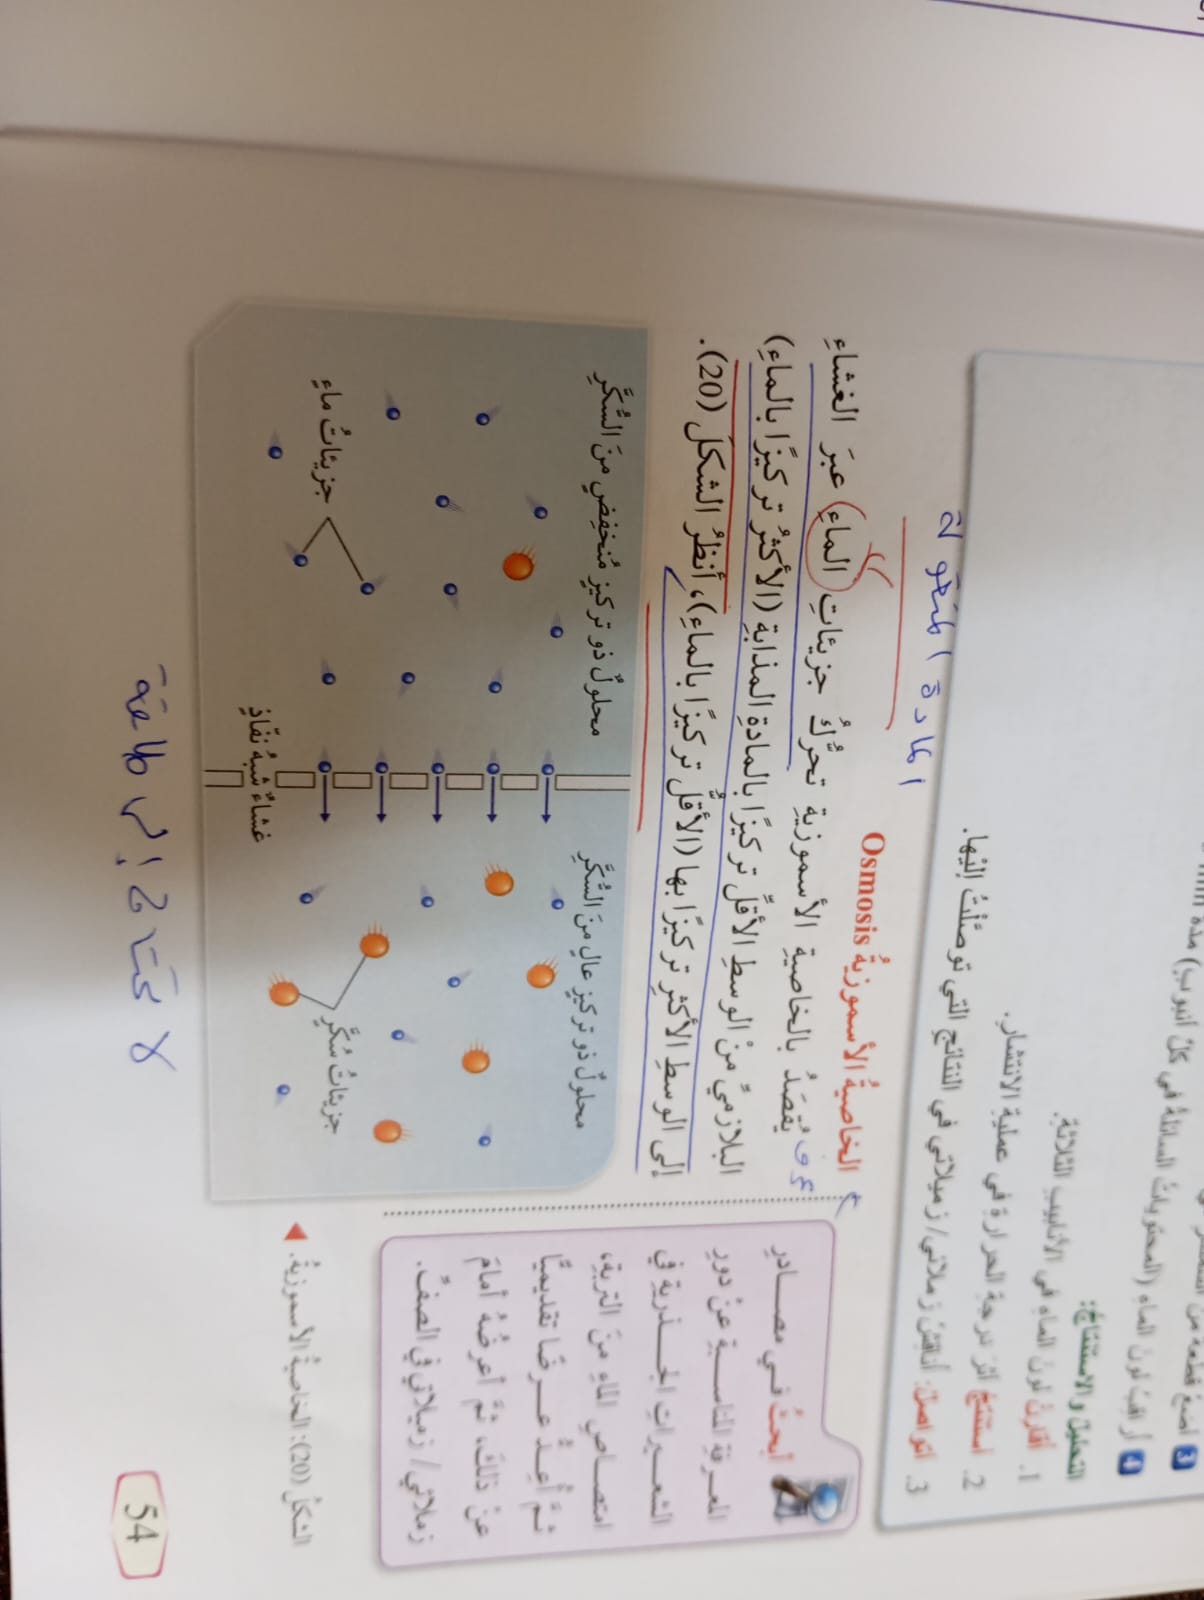 3 أضعُ قطعةً منَ
4 أراقبُ لونَ الماءِ (المحتوياتُ السائلةُ في كلِّ أنبوبٍ) مدةَ
التحليلُ والاستنتاجُ:
1. أقارنُ لونَ الماءِ في الأنابيبِ الثلاثةِ.
2. أستنتجُ أثرَ درجةِ الحرارةِ في عمليةِ الانتشارِ.
3. أتواصلُ: أناقشُ زملائي/ زميلاتي في النتائجِ التي توصَّلْتُ إليْها.
المادة المنقولة
الخاصيةُ الأسموزيةُ Osmosis
يُقصَدُ بالخاصيةِ الأسموزيةِ تحرُّكُ جزيئاتِ الماءِ عبرَ الغشاءِ
البلازميِّ منْ الوسطِ الأقلِّ تركيزًا بالمادةِ المذابةِ (الأكثرُ تركيزًا بالماءِ)
إلى الوسطِ الأكثرِ تركيزًا بها (الأقلِّ تركيزًا بالماءِ)، أنظرُ الشكلَ (20).
أبحثُ في مصادرِ
المعرفةِ المناسبةِ عنْ دورِ
الشعيراتِ الجذريةِ في
امتصاصِ الماءِ منَ التربةِ،
ثمَّ أُعِدُّ عرضًا تقديميًّا
عنْ ذلكَ، ثمَّ أعرضُهُ أمامَ
زملائي/ زميلاتي في الصفِّ.
محلولٌ ذو تركيزٍ عالٍ منَ السُّكَّرِ
محلولٌ ذو تركيزٍ مُنخفِضٍ منَ السُّكَّرِ
جزيئاتُ سُكَّرٍ
جزيئاتُ ماءٍ
غشاءٌ شبهُ نفّاذٍ
الشكلُ (20): الخاصيةُ الأسموزيةُ.
لا تحتاج إلى طاقة
54